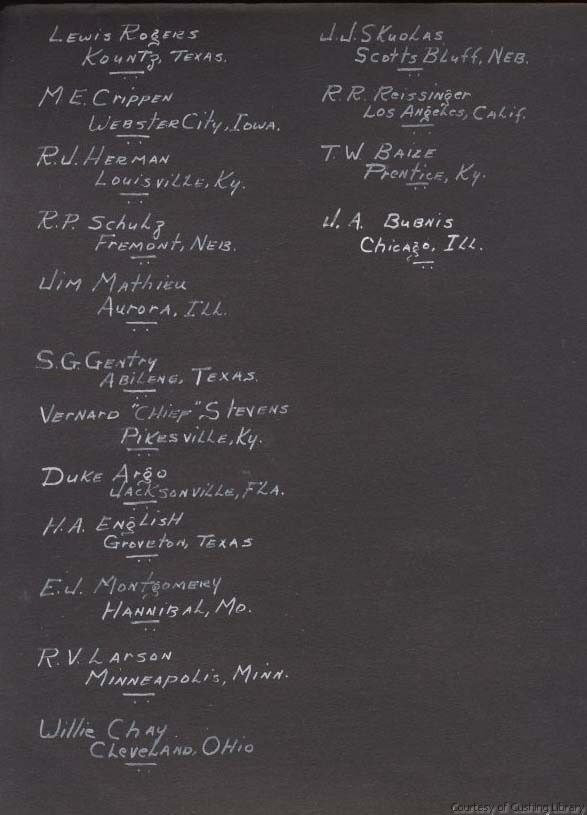 Lewis Rogers
Kountz, Texas.
M.E. Crippen
Webster City, Iowa.
R.J. Herman
Louisville, Ky.
R.P. Schulz
Fremont, Neb.
Jim Mathieu
Aurora, Ill.
S.G. Gentry
Abilene, Texas.
Vernard "Chief" Stevens
Pikesville, Ky.
Duke Argo
Jacksonville, Fla.
H.A. English
Groveton, Texas
E.J. Montgomery
Hannibal, Mo.
R.V. Larson
Minneapolis, Minn.
Willie Chay
Cleveland, Ohio
J.J. Skuolas
Scotts Bluff, Neb.
R.R. Reissinger
Los Angeles, Calif.
T.W. Baize
Prentice, Ky.
J.A. Bubnis
Chicago, Ill.
Courtesy of Cushing Library